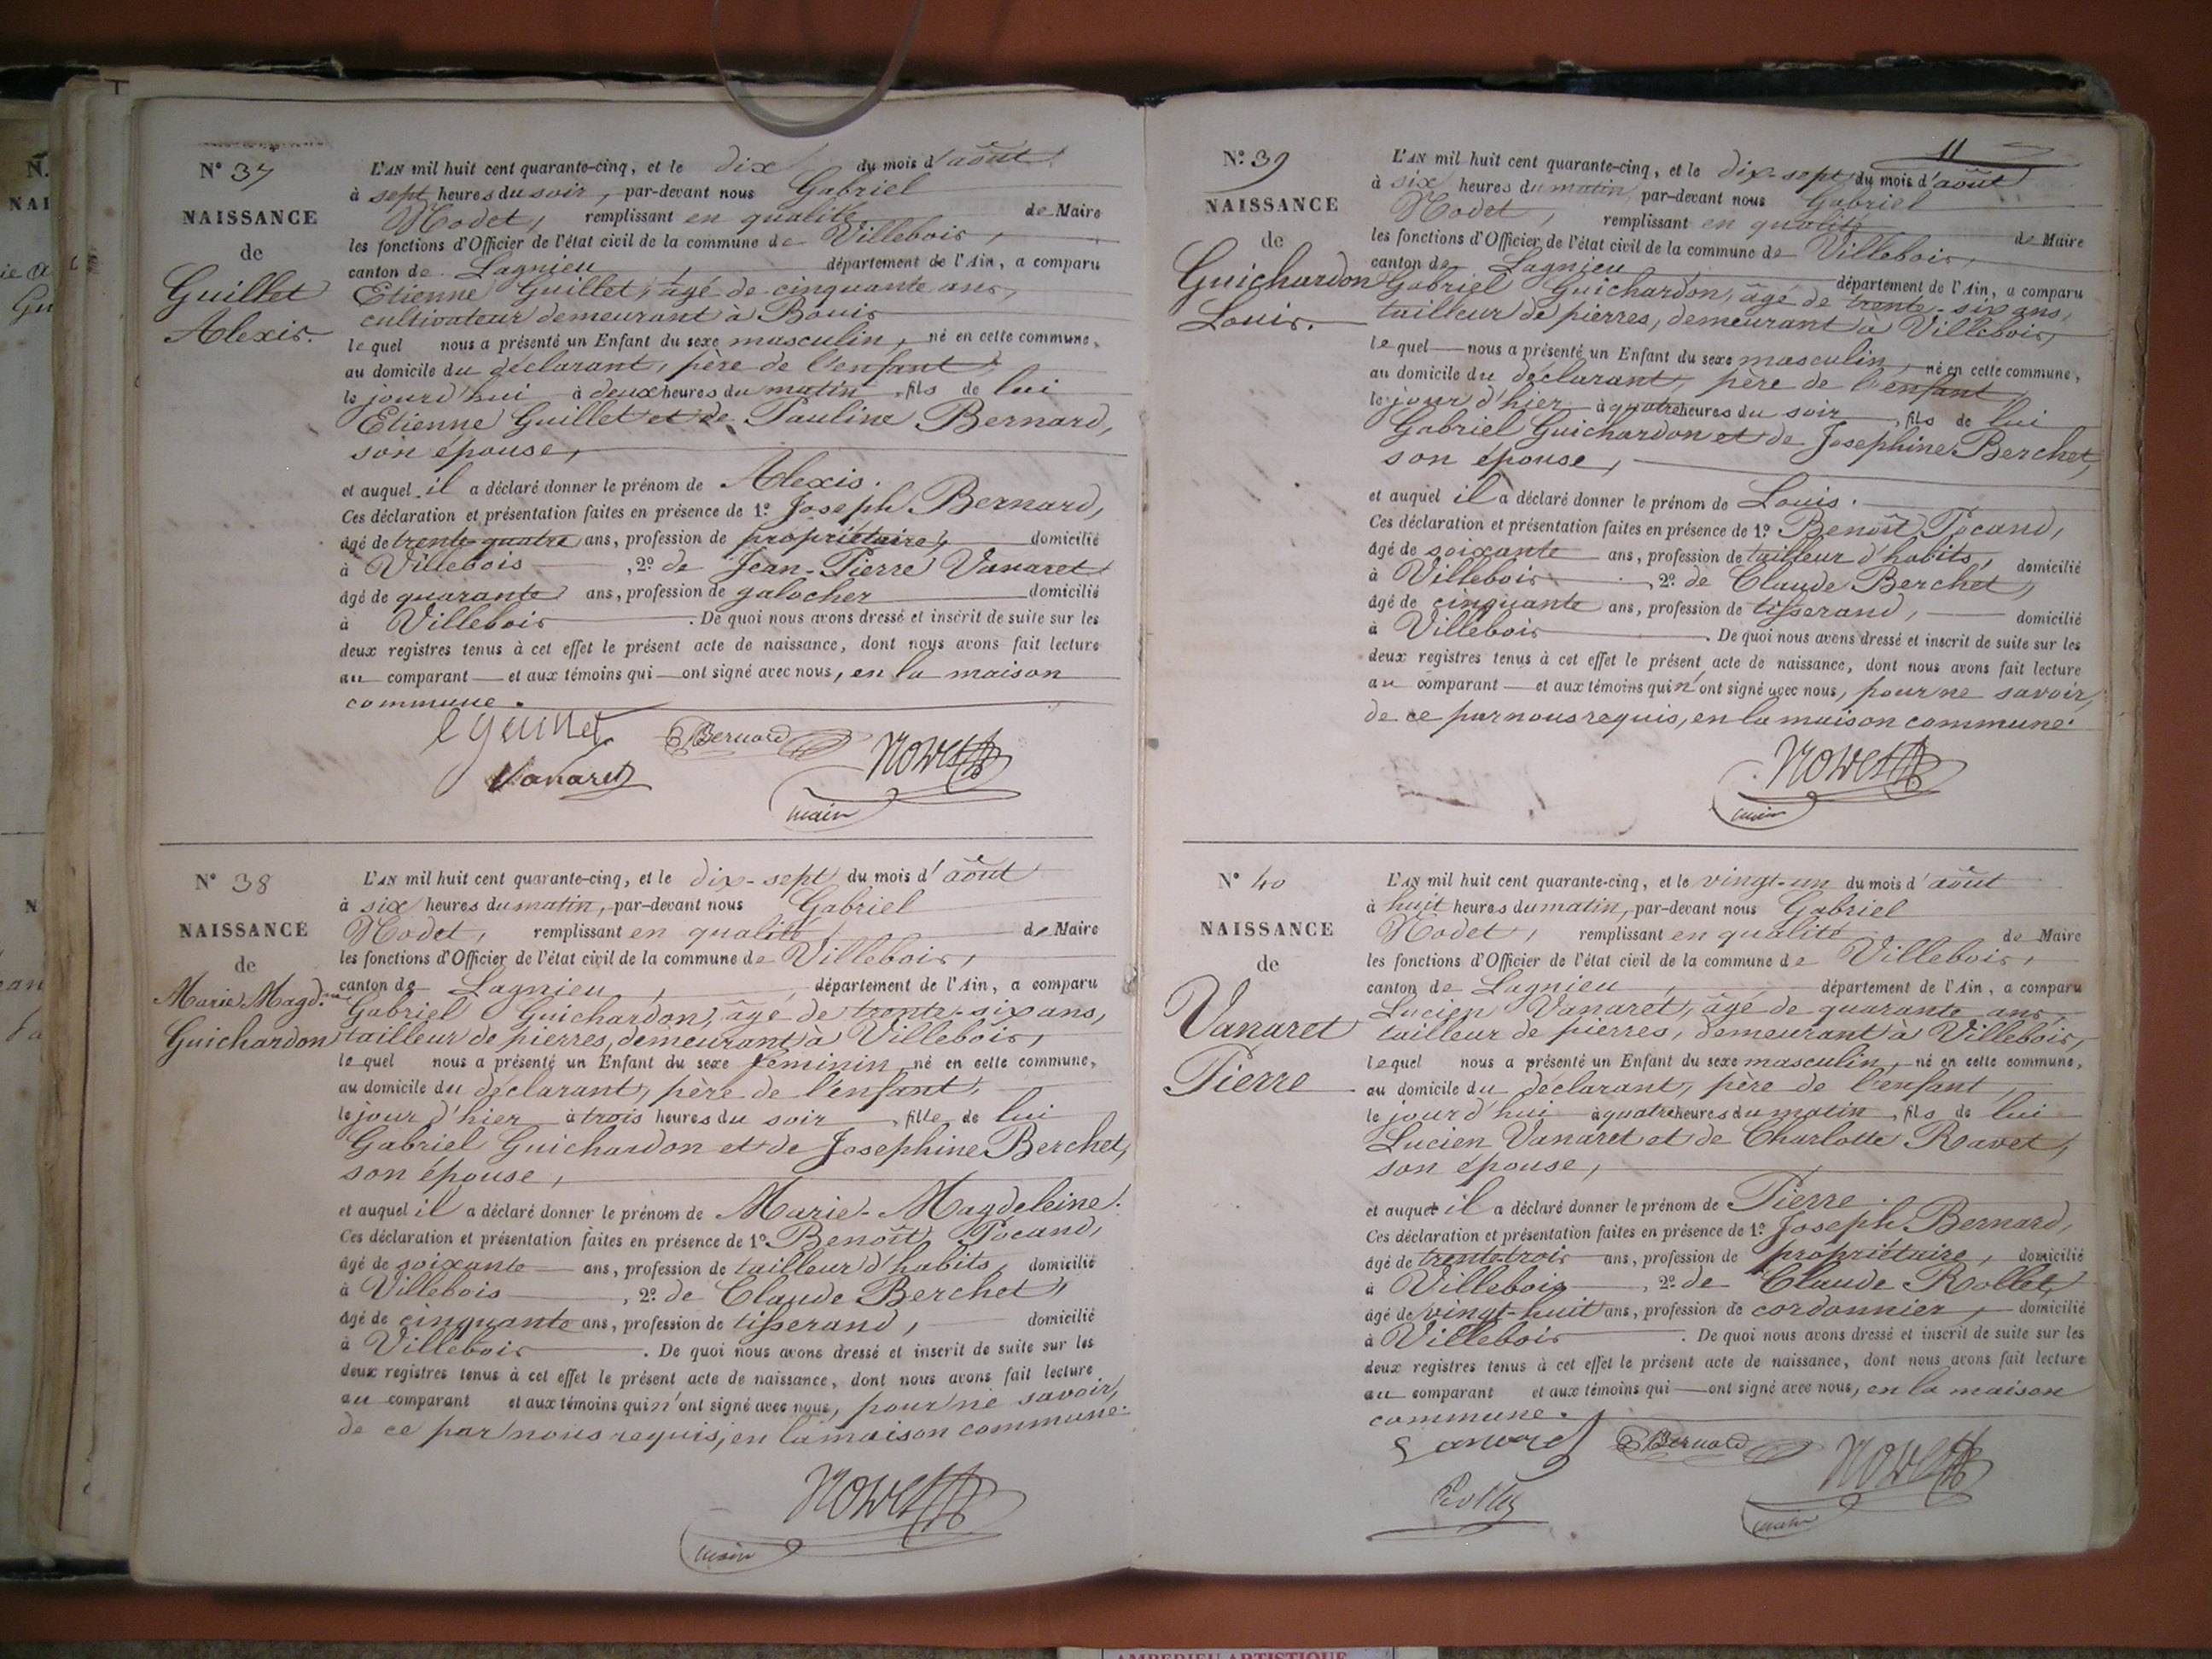 N° 37
NAISSANCE
de
Guillet
Alexis.
L'AN mil huit cent quarante-cinq, et le dix du mois d'août
à sept heures du soir, par-devant nous Gabriel
Nodet, remplissant en qualité de Maire
les fonctions d'Officier de l'état civil de la commune de Villebois,
canton de Lagnieu, département de l'Ain, a comparu
Etienne Guillet, âgé de cinquante ans,
cultivateur demeurant à Bouis
lequel nous a présenté un Enfant du sexe masculin, né en cette commune,
au domicile du déclarant, père de l'enfant,
le jourd'hui à deux heures du matin, fils de lui
Etienne Guillet et de Pauline Bernard,
son épouse,
et auquel il a déclaré donner le prénom de Alexis.
Ces déclaration et présentation faites en présence de 1° Joseph Bernard,
âgé de trente-quatre ans, profession de propriétaire, domicilié
à Villebois, 2° de Jean-Pierre Vanaret
âgé de quarante ans, profession de galocher domicilié
à Villebois. De quoi nous avons dressé et inscrit de suite sur les
deux registres tenus à cet effet le présent acte de naissance, dont nous avons fait lecture
au comparant et aux témoins qui ont signé avec nous, en la maison
commune.
e guillet Bernard Nodet
Vanaret
maire
N° 38
NAISSANCE
de
Marie Magd.ne
Guichardon
L'AN mil huit cent quarante-cinq, et le dix-sept du mois d'août
à six heures du matin, par-devant nous Gabriel
Nodet, remplissant en qualité de Maire
les fonctions d'Officier de l'état civil de la commune de Villebois,
canton de Lagnieu, département de l'Ain, a comparu
Gabriel Guichardon, âgé de trente-six ans,
tailleur de pierres, demeurant à Villebois,
lequel nous a présenté un Enfant du sexe féminin, né en cette commune,
au domicile du déclarant, père de l'enfant,
le jour d'hier à trois heures du soir, fille de lui
Gabriel Guichardon et de Josephine Berchet,
son épouse,
et auquel il a déclaré donner le prénom de Marie-Magdeleine.
Ces déclaration et présentation faites en présence de 1° Benoît Pocand,
âgé de soixante ans, profession de tailleur d'habits, domicilié
à Villebois, 2° de Claude Berchet,
âgé de cinquante ans, profession de tisserand, domicilié
à Villebois. De quoi nous avons dressé et inscrit de suite sur les
deux registres tenus à cet effet le présent acte de naissance, dont nous avons fait lecture
au comparant et aux témoins qui n'ont signé avec nous, pour ne savoir,
de ce par nous requis, en la maison commune.
Nodet
maire
11
N° 39
NAISSANCE
de
Guichardon
Louis.
L'AN mil huit cent quarante-cinq, et le dix-sept du mois d'août
à six heures du matin, par-devant nous Gabriel
Nodet, remplissant en qualité de Maire
les fonctions d'Officier de l'état civil de la commune de Villebois,
canton de Lagnieu, département de l'Ain, a comparu
Gabriel Guichardon, âgé de trente-six ans,
tailleur de pierres, demeurant à Villebois,
lequel nous a présenté un Enfant du sexe masculin, né en cette commune,
au domicile du déclarant, père de l'enfant,
le jour d'hier à quatre heures du soir, fils de lui
Gabriel Guichardon et de Josephine Berchet,
son épouse,
et auquel il a déclaré donner le prénom de Louis.
Ces déclaration et présentation faites en présence de 1° Benoît Pocand,
âgé de soixante ans, profession de tailleur d'habits, domicilié
à Villebois, 2° de Claude Berchet,
âgé de cinquante ans, profession de tisserand, domicilié
à Villebois. De quoi nous avons dressé et inscrit de suite sur les
deux registres tenus à cet effet le présent acte de naissance, dont nous avons fait lecture
au comparant et aux témoins qui n'ont signé avec nous, pour ne savoir,
de ce par nous requis, en la maison commune.
Nodet
maire
N° 40
NAISSANCE
de
Vanaret
Pierre
L'AN mil huit cent quarante-cinq, et le vingt-un du mois d'août
à huit heures du matin, par-devant nous Gabriel
Nodet, remplissant en qualité de Maire
les fonctions d'Officier de l'état civil de la commune de Villebois,
canton de Lagnieu, département de l'Ain, a comparu
Lucien Vanaret, âgé de quarante ans,
tailleur de pierres, demeurant à Villebois,
lequel nous a présenté un Enfant du sexe masculin, né en cette commune,
au domicile du déclarant, père de l'enfant,
le jourd'hui à quatre heures du matin, fils de lui
Lucien Vanaret et de Charlotte Ravet,
son épouse,
et auquel il a déclaré donner le prénom de Pierre.
Ces déclaration et présentation faites en présence de 1° Joseph Bernard,
âgé de trente-trois ans, profession de propriétaire, domicilié
à Villebois, 2° de Claude Rollet,
âgé de vingt-huit ans, profession de cordonnier, domicilié
à Villebois. De quoi nous avons dressé et inscrit de suite sur les
deux registres tenus à cet effet le présent acte de naissance, dont nous avons fait lecture
au comparant et aux témoins qui ont signé avec nous, en la maison
commune.
Bernard Nodet
Rollet
maire
AMBERIEU ARTISTIQUE